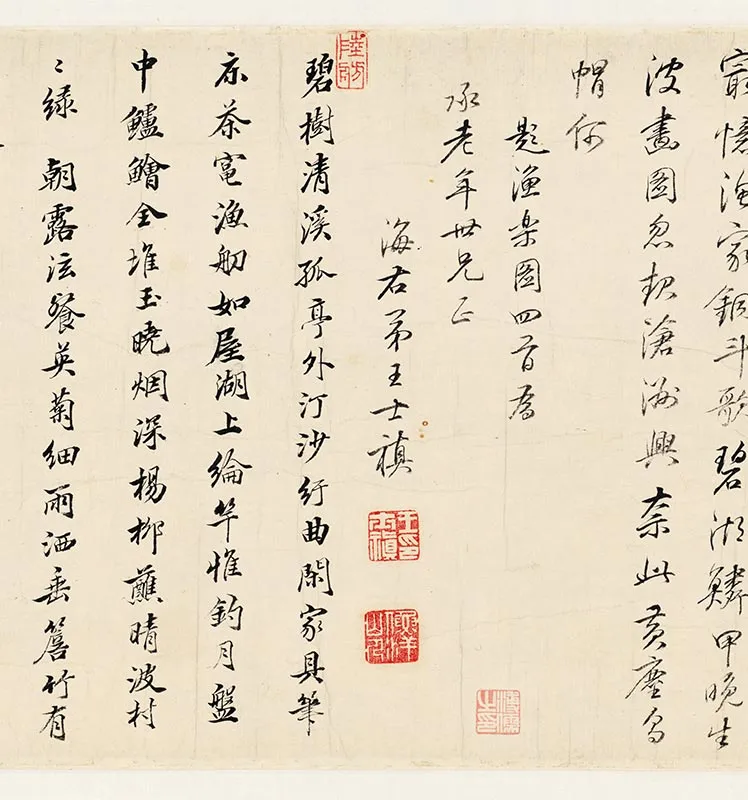 最憶漁家銅斗歌碧湖鱗甲晚生
波畫圖忽起滄洲興奈此黃塵烏
帽何
題漁楽圖四首為
承老年世兄正
海右弟王士禛
王士禛印
漁洋山人
碧樹清溪孤亭外汀沙紆曲閑家具筆
床茶竈漁舠如屋湖上綸竿惟釣月盤
中鱸鱠全堆玉曉烟深楊柳蘸晴波村
〻綠 朝露泫餐英菊細雨洒垂簷竹有